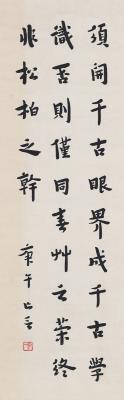 須開千古眼界成千古學
識否則僅同春艸之榮終
非松柏之幹
庚午亡言